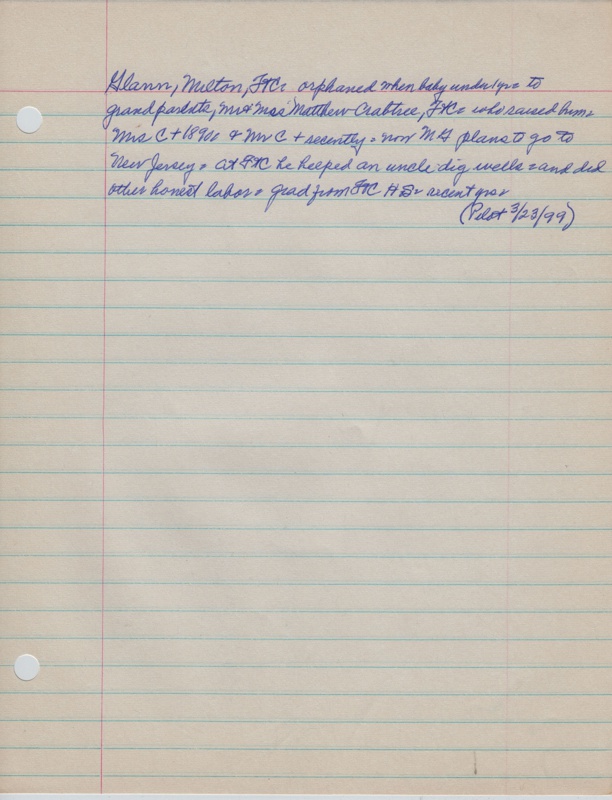 Glann, Milton, FtC = orphaned when baby under 1 yr = to
grandparents, Mr & Mrs Matthew Crabtree, FtC = who raised him =
Mrs C + 1890 & Mr C + recently = now MG plans to go to
New Jersey = at FtC he helped an uncle dig wells = and did
other honest labor = grad from FtC HS = recent yrs =
(Pilot 3/23/99)